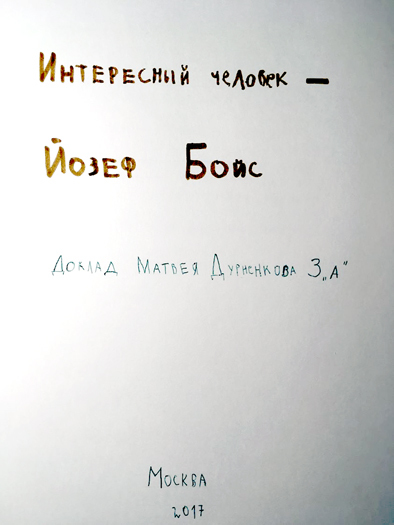 Интересный человек —
Йозеф Бойс
Доклад Матвея Дурненкова 3„А"
Москва
2017